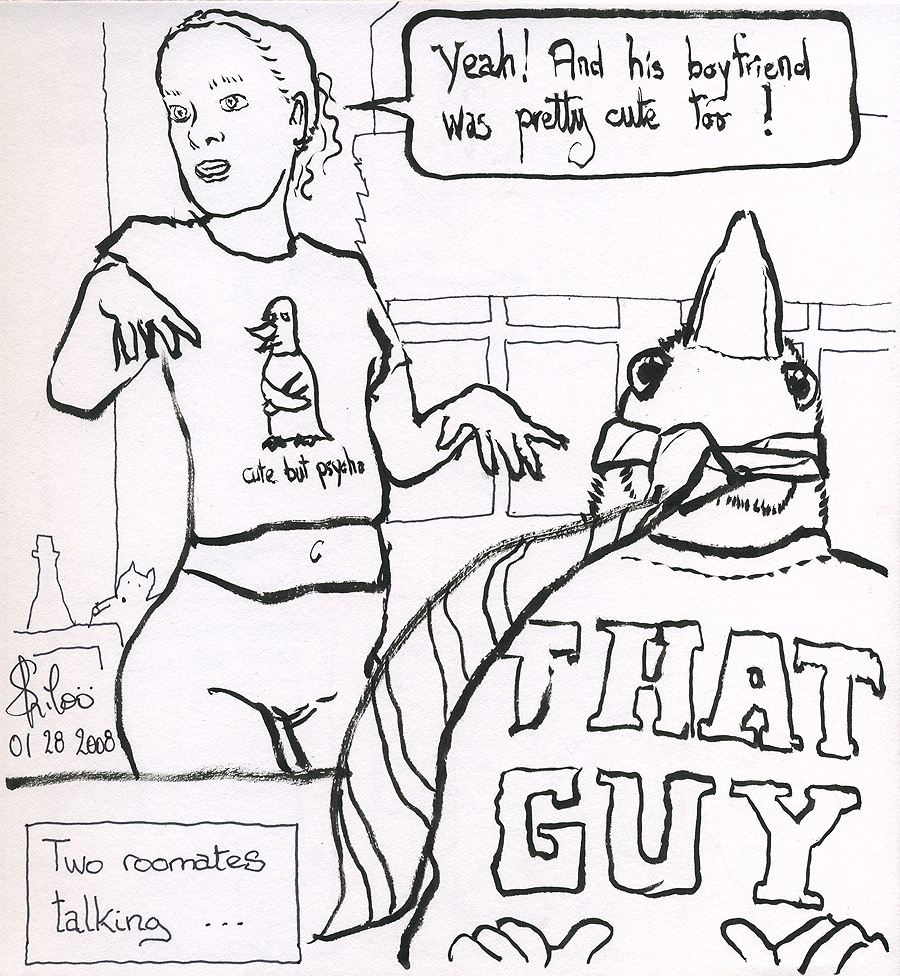 Yeah! And his boyfriend
was pretty cute too !
cute but psycho
THAT
GUY
01 28 2008
Two roomates
talking ...